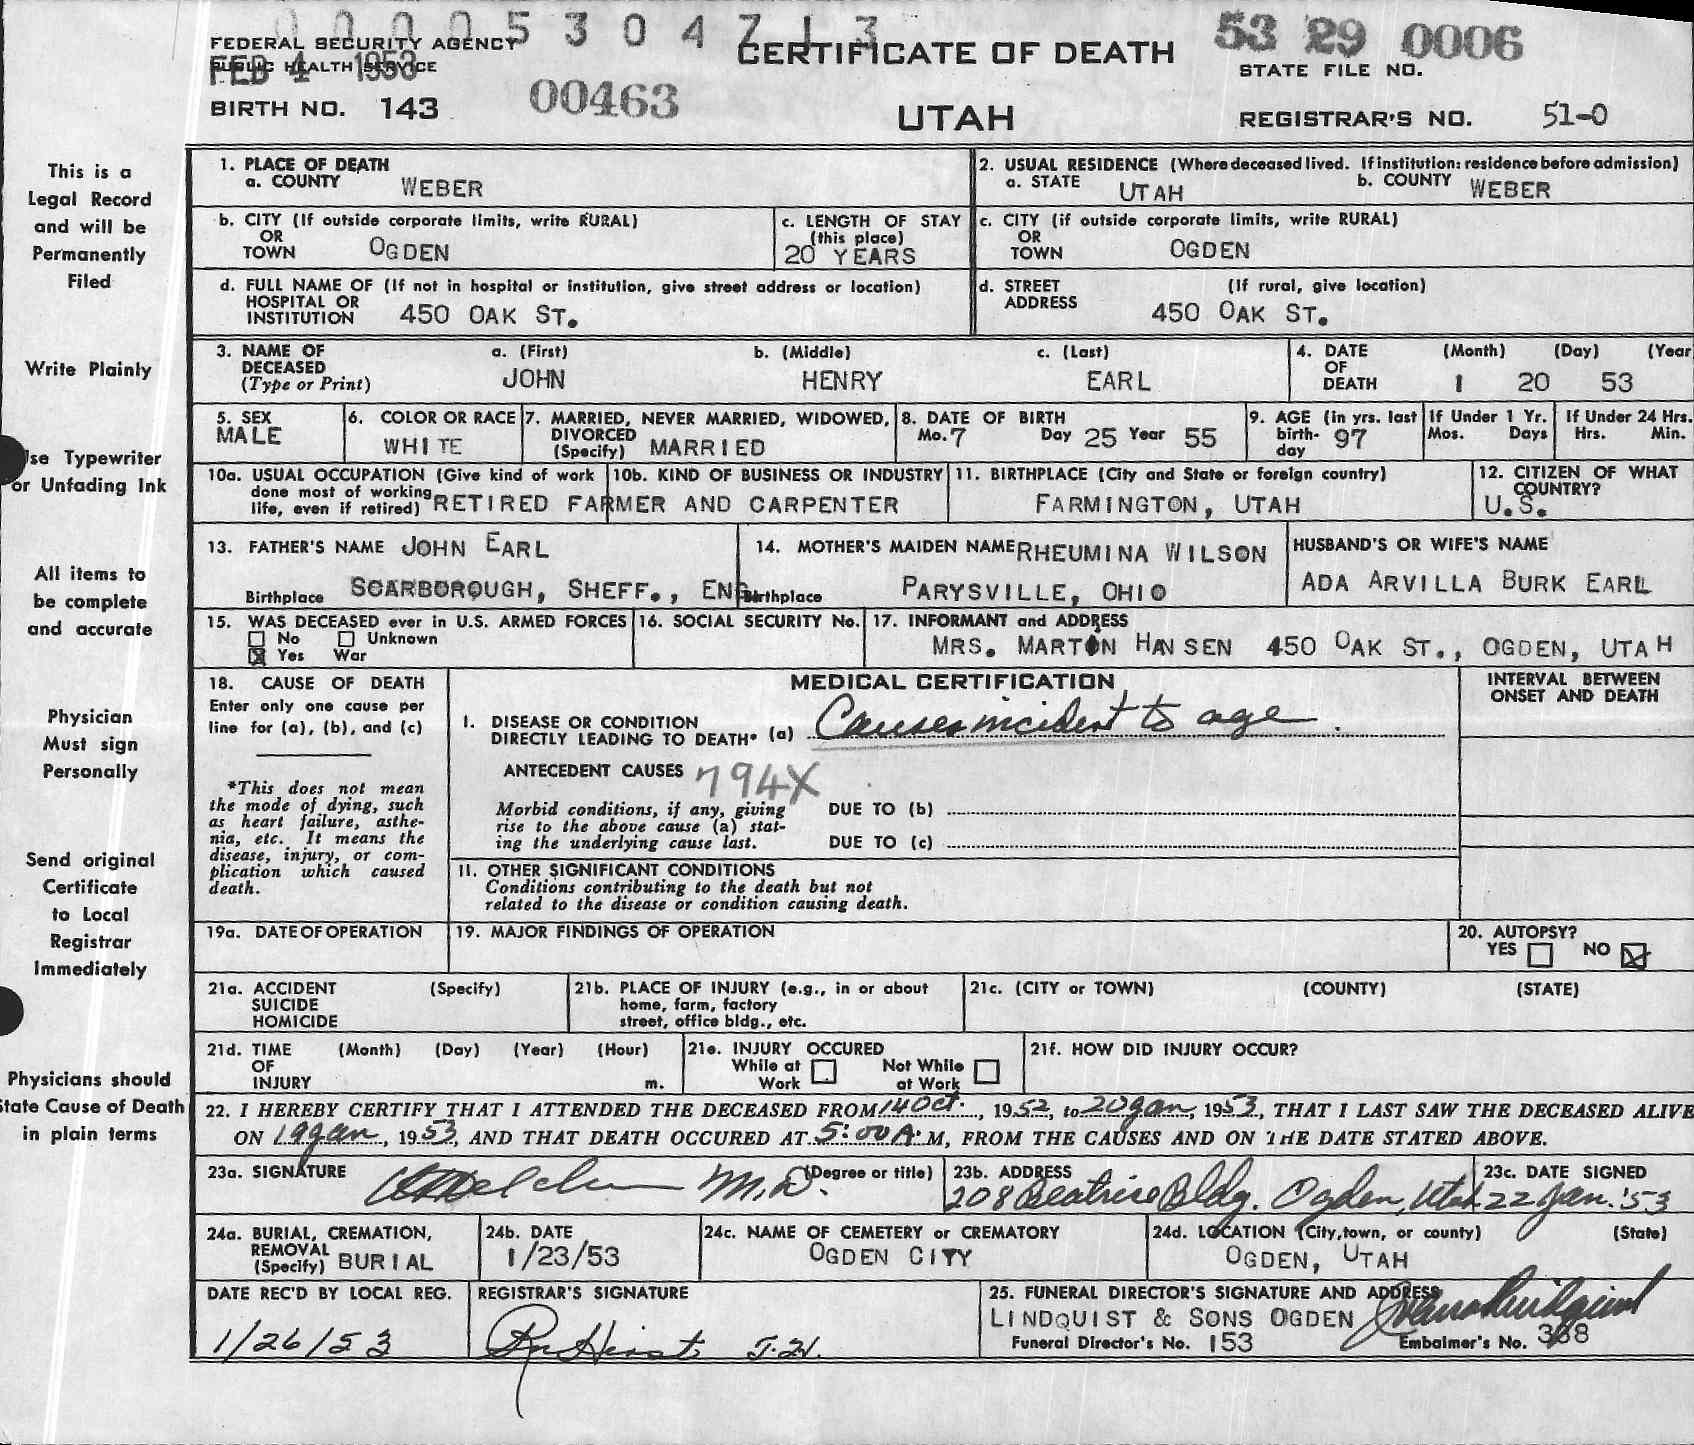 00005304713
FEDERAL SECURITY AGENCY
PUBLIC HEALTH SERVICE
FEB 4 1953
BIRTH NO. 143
00463
CERTIFICATE OF DEATH
UTAH
53 29 0006
STATE FILE NO.
REGISTRAR'S NO. 51-0
This is a
Legal Record
and will be
Permanently
Filed
Write Plainly
Use Typewriter
or Unfading Ink
All items to
be complete
and accurate
Physician
Must sign
Personally
Send original
Certificate
to Local
Registrar
Immediately
Physicians should
State Cause of Death
in plain terms
1. PLACE OF DEATH
a. COUNTY WEBER
2. USUAL RESIDENCE (Where deceased lived. If institution: residence before admission)
a. STATE UTAH b. COUNTY WEBER
b. CITY (If outside corporate limits, write RURAL)
OR
TOWN OGDEN
c. LENGTH OF STAY
(this place)
20 YEARS
c. CITY (if outside corporate limits, write RURAL)
OR
TOWN OGDEN
d. FULL NAME OF (If not in hospital or institution, give street address or location)
HOSPITAL OR
INSTITUTION 450 OAK ST.
d. STREET (If rural, give location)
ADDRESS 450 OAK ST.
3. NAME OF a. (First) b. (Middle) c. (Last)
DECEASED
(Type or Print) JOHN HENRY EARL
4. DATE (Month) (Day) (Year
OF
DEATH 1 20 53
5. SEX
MALE
6. COLOR OR RACE
WHITE
7. MARRIED, NEVER MARRIED, WIDOWED,
DIVORCED
(Specify) MARRIED
8. DATE OF BIRTH
Mo. 7 Day 25 Year 55
9. AGE (in yrs. last
birth- 97
day
If Under 1 Yr.
Mos. Days
If Under 24 Hrs.
Hrs. Min.
10a. USUAL OCCUPATION (Give kind of work
done most of working
life, even if retired) RETIRED FARMER AND CARPENTER
10b. KIND OF BUSINESS OR INDUSTRY
11. BIRTHPLACE (City and State or foreign country)
FARMINGTON, UTAH
12. CITIZEN OF WHAT
COUNTRY?
U.S.
13. FATHER'S NAME JOHN EARL
Birthplace SCARBOROUGH, SHEFF., ENG.
14. MOTHER'S MAIDEN NAME RHEUMINA WILSON
Birthplace PARYSVILLE, OHIO
HUSBAND'S OR WIFE'S NAME
ADA ARVILLA BURK EARL
15. WAS DECEASED ever in U.S. ARMED FORCES
No Unknown
Yes War
16. SOCIAL SECURITY No.
17. INFORMANT and ADDRESS
MRS. MARTON HANSEN 450 OAK ST., OGDEN, UTAH
18. CAUSE OF DEATH
Enter only one cause per
line for (a), (b), and (c)
*This does not mean
the mode of dying, such
as heart failure, asthe-
nia, etc. It means the
disease, injury, or com-
plication which caused
death.
MEDICAL CERTIFICATION
INTERVAL BETWEEN
ONSET AND DEATH
I. DISEASE OR CONDITION
DIRECTLY LEADING TO DEATH* (a) Causes incident to age
ANTECEDENT CAUSES 794X
Morbid conditions, if any, giving
rise to the above cause (a) stat-
ing the underlying cause last.
DUE TO (b)
DUE TO (c)
11. OTHER SIGNIFICANT CONDITIONS
Conditions contributing to the death but not
related to the disease or condition causing death.
19a. DATE OF OPERATION
19. MAJOR FINDINGS OF OPERATION
20. AUTOPSY?
YES NO
21a. ACCIDENT (Specify)
SUICIDE
HOMICIDE
21b. PLACE OF INJURY (e.g., in or about
home, farm, factory
street, office bldg., etc.
21c. (CITY or TOWN) (COUNTY) (STATE)
21d. TIME (Month) (Day) (Year) (Hour)
OF
INJURY m.
21e. INJURY OCCURED
While at Not While
Work at Work
21f. HOW DID INJURY OCCUR?
22. I HEREBY CERTIFY THAT I ATTENDED THE DECEASED FROM 14 Oct., 1952, to 20 Jan, 1953, THAT I LAST SAW THE DECEASED ALIVE
ON 19 Jan, 1953, AND THAT DEATH OCCURED AT 5:00 A.M, FROM THE CAUSES AND ON THE DATE STATED ABOVE.
23a. SIGNATURE M.D. (Degree or title)
23b. ADDRESS
208 Beatrice Bldg. Ogden, Utah
23c. DATE SIGNED
22 Jan. '53
24a. BURIAL, CREMATION,
REMOVAL
(Specify) BURIAL
24b. DATE
1/23/53
24c. NAME OF CEMETERY or CREMATORY
OGDEN CITY
24d. LOCATION (City, town, or county) (State)
OGDEN, UTAH
DATE REC'D BY LOCAL REG.
1/26/53
REGISTRAR'S SIGNATURE
25. FUNERAL DIRECTOR'S SIGNATURE AND ADDRESS
LINDQUIST & SONS OGDEN
Funeral Director's No. 153
Embalmer's No. 368